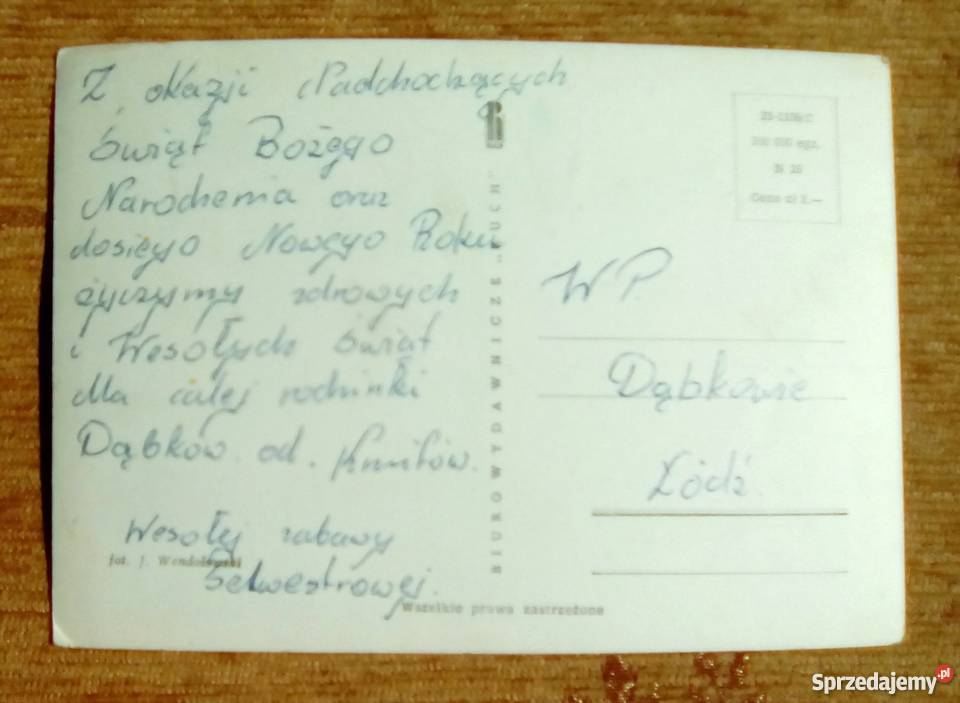 Z okazji Nadchodzących
Świąt Bożego
Narodzenia oraz
dosiego Nowego Roku
życzymy zdrowych
i Wesołych świąt
dla całej rodzinki
Dąbków. od. Kmitów.
Wesołej zabawy
Selwestrowej.
fot. J. Wendołowski
BIURO WYDAWNICZE „RUCH"
Wszelkie prawa zastrzeżone
Cena zł 1.—
W P.
Dąbkowie
Łódź.
Sprzedajemy.pl